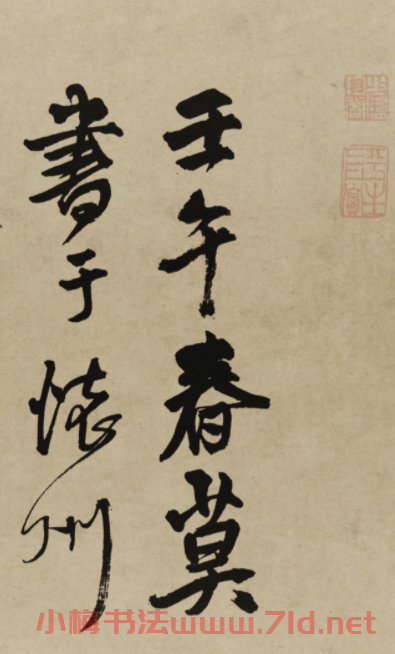 壬午春莫
書于懷州
小梅书法www.7ld.net